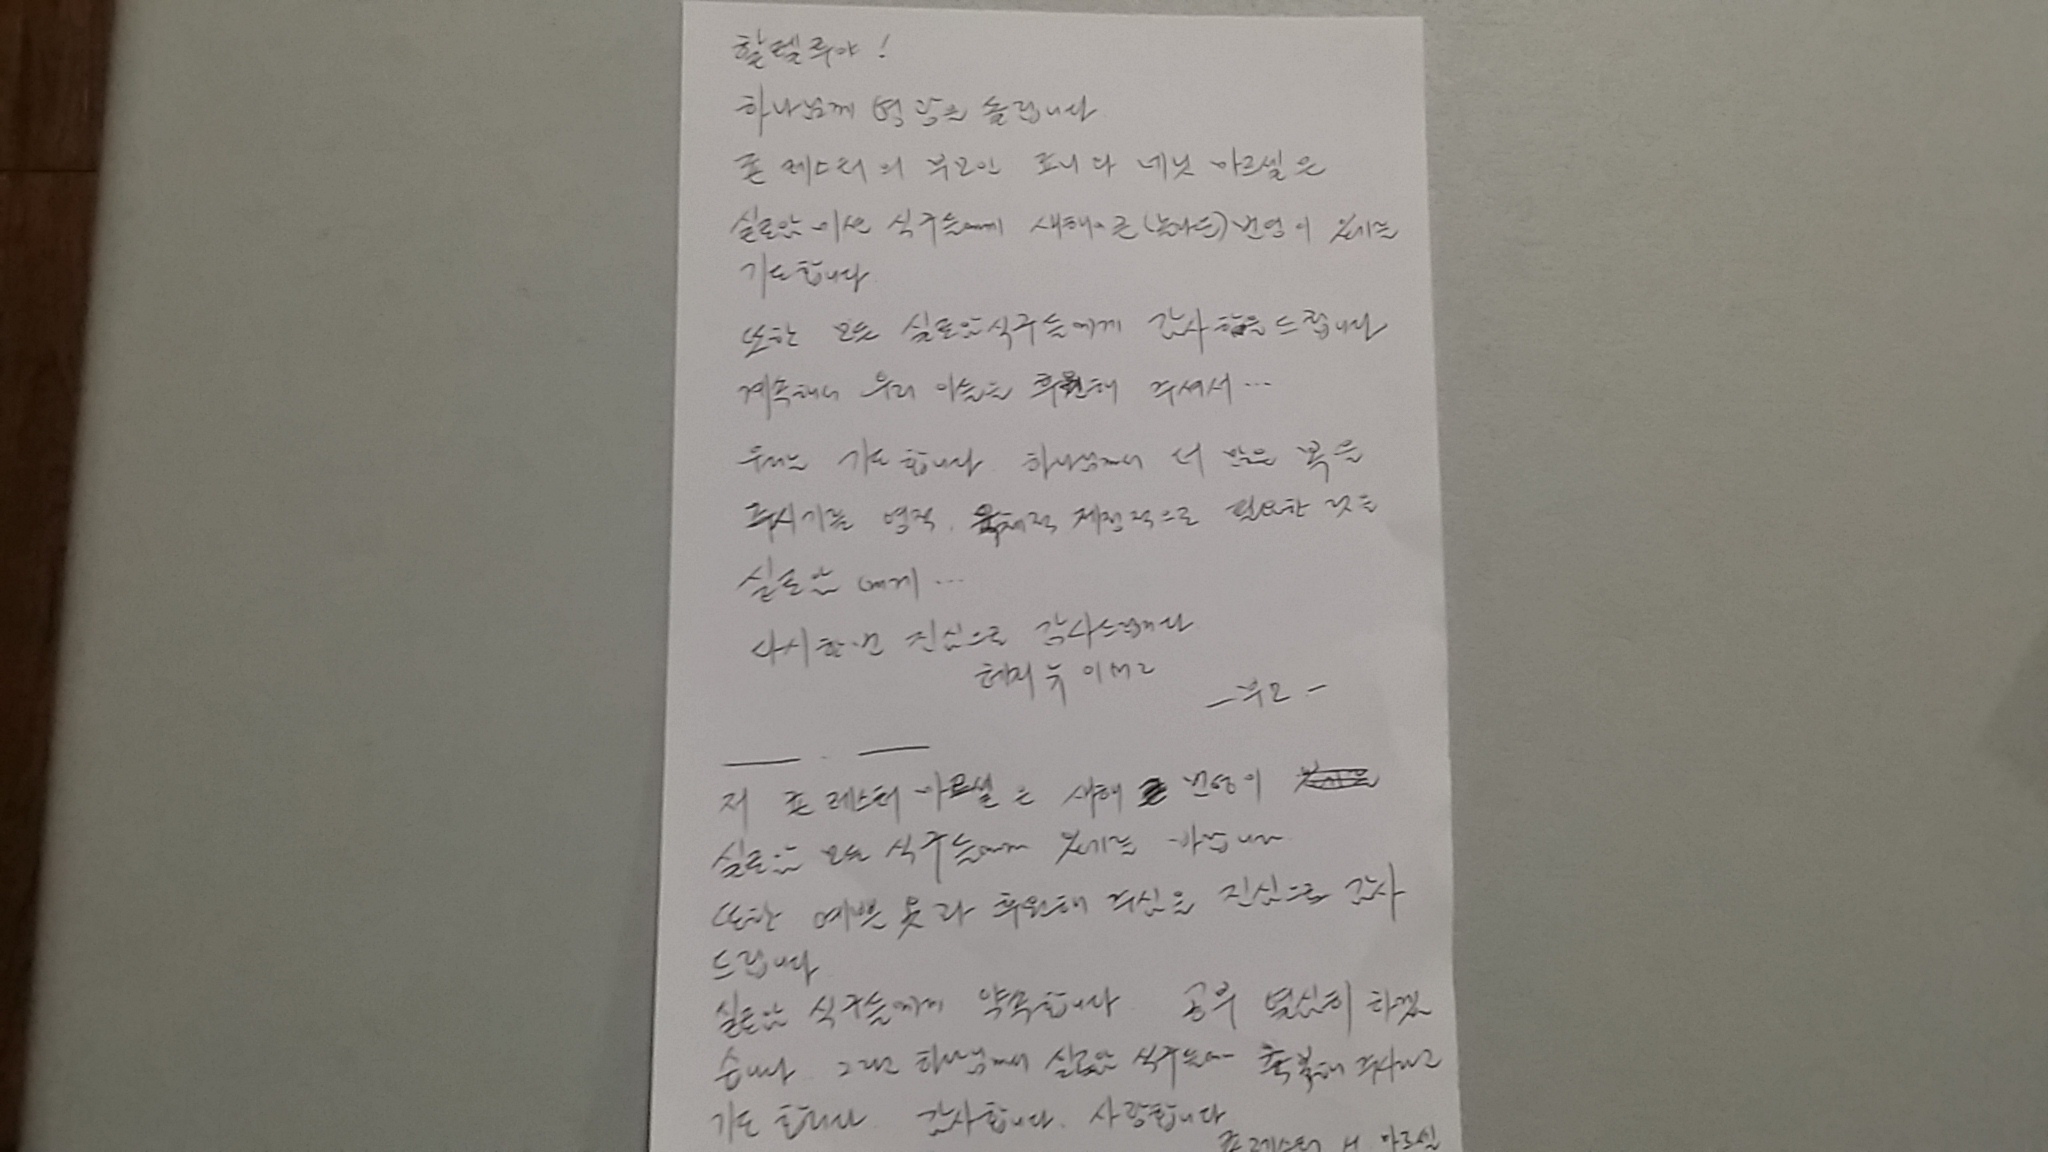 할렐루야!
하나님께 영광을 올립니다
폰 레스터의 부모인 로니 다 네닛 아르셀은
실로암 식구들에게 새해 큰 (놀라운) 번영이 있기를
기도합니다
또한 모든 실로암 식구들에게 감사함을 드립니다
계속해서 우리 아들을 후원해 주셔서...
우리는 기도합니다 하나님께서 더 많은 복을
주시기를 영적, 육체적 재정적으로 필요한 것을
실로암에게...
다시 한번 진심으로 감사드립니다
해피 뉴 이어
- 부모 -
저 폰 레스터 아르셀은 새해 번영이
실로암 모든 식구들에게 있기를 바랍니다
또한 예쁜 옷과 후원해 주심을 진심으로 감사
드립니다
실로암 식구들에게 약속합니다 공부 열심히 하겠
습니다. 그리고 하나님께서 실로암 식구들에게 축복해 주시라고
기도합니다 감사합니다. 사랑합니다
폰 레스터 H 아르셀